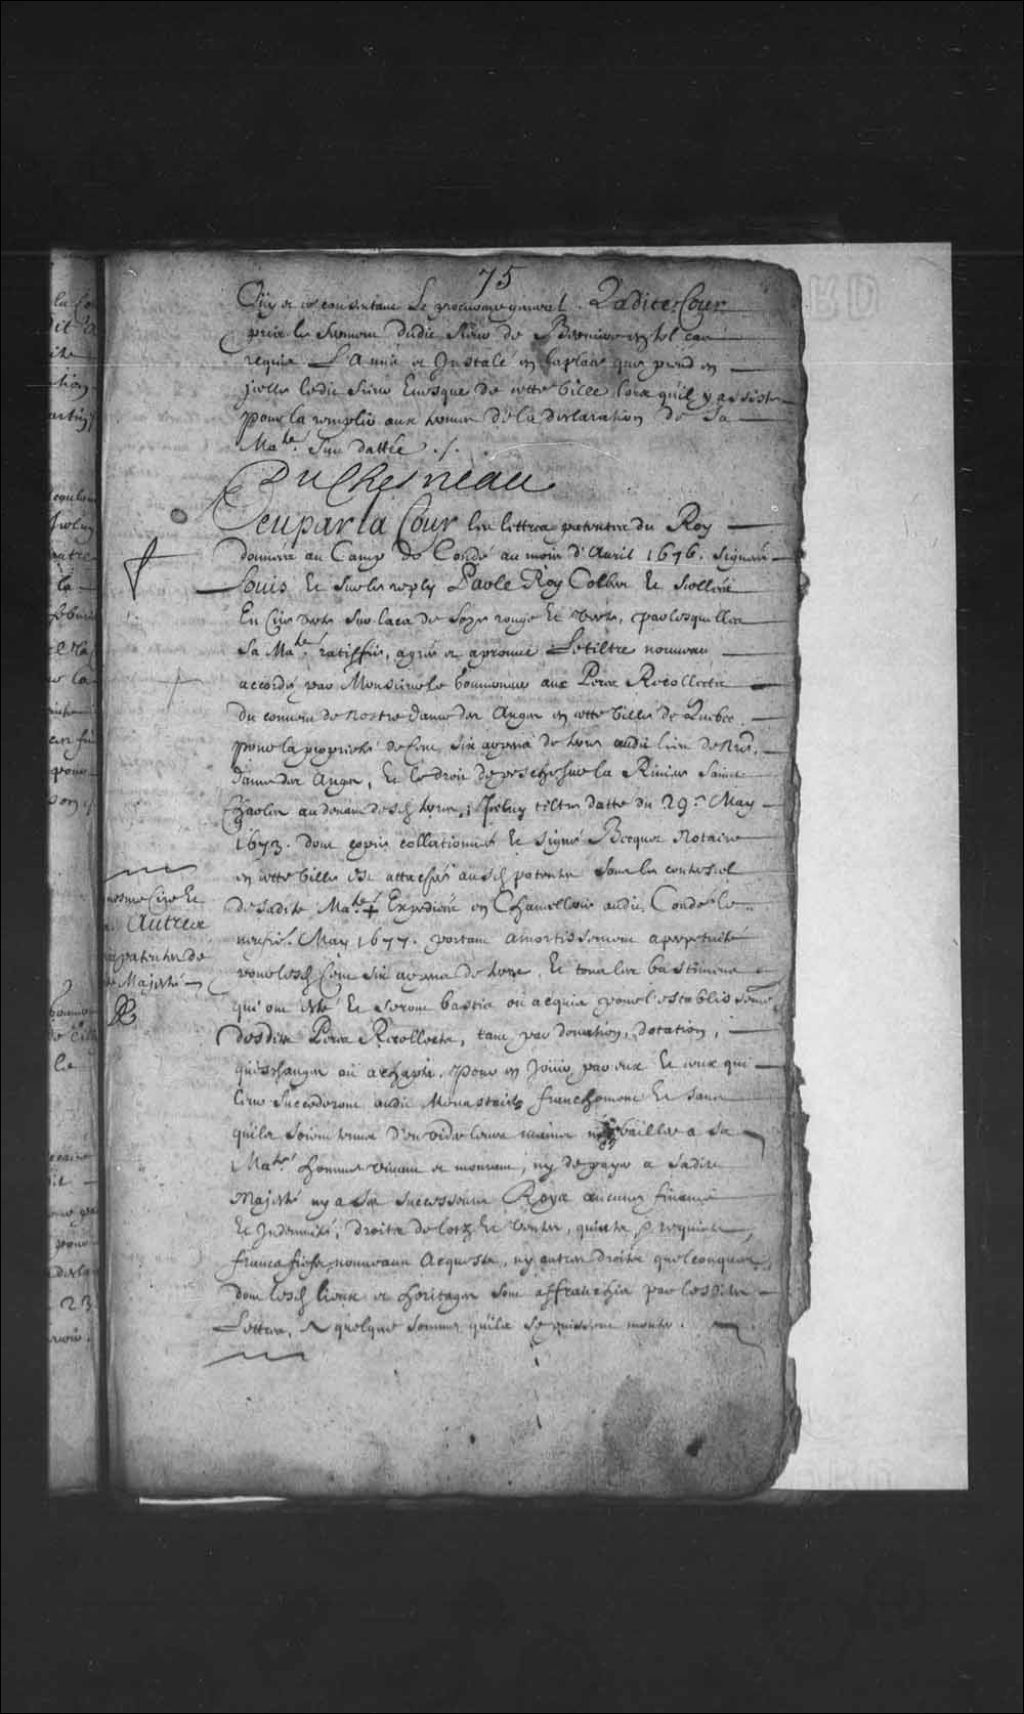 75
Oüy et ce consentant Le procureur general. Ladite Cour
pris le serment dudit Sieur de Bernieres en tel cas
requis L'a mis et Installé en la place que prend en
icelle ledit Sieur Evesque de cette ville lors qu'il y assiste
pour la remplir aux termes de la declaration de Sa
Maté. sus dattée ./.
DuChesneau
Veu par la Cour les lettres patentes du Roy
données au Camp de Condé au mois d'Avril 1676. Signées
Louis Et Sur le reply Par le Roy Colbert Et Scellées
En Cire verte sur lacs de Soye rouge Et verte, par lesquelles
Sa Maté. ratiffie, agrée et aprouve Le tiltre nouveau
accordé par Monsieur le Gouverneur aux Peres Recollects
du couvent de Nostre Dame des Anges en cette ville de Quebec,
pour la proprieté de Cent six arpens de terre audit lieu de Nre.
Dame des Anges, Et le droit de pesche sur la Riviere Saint
Charles au devant desd. terres, Iceluy tiltre datté du 29e. May
1673. dont copie collationnée Et signée Becquet Notaire
en cette ville est attachée ausd. patentes sous le contrescel
de Sadite Maté. + Expediées en Chancellerie audit Condé le
neufie. May 1677. portant amortissement a perpetuité
pour lesd. Cent six arpens de terre, Et tous les bastimens
qui ont esté Et seront bastis ou acquis pour l'establissement
desdits Peres Recollects, tant par donation, dotation,
qu'eschanges ou achapts. pour en Joüir par eux Et ceux qui
leur succederont audit Monastaire franchement Et sans
qu'ils soient tenus d'en vider leurs mains ny bailler a Sa
Maté. homme vivant et mourant, ny de payer a Sadite
Majesté ny a Ses successeurs Roys aucunes finances
Et Indemnité, droits de lotz Et ventes, quints, requints,
francs fiefs, nouveaux Acquests, ny autres droits quelconques,
dont lesd. lieux et heritages sont affranchis par lesdites
Lettres, A quelques sommes qu'ils se puissent monter.
mesme Cire Et
Autres
patentes de
Majesté